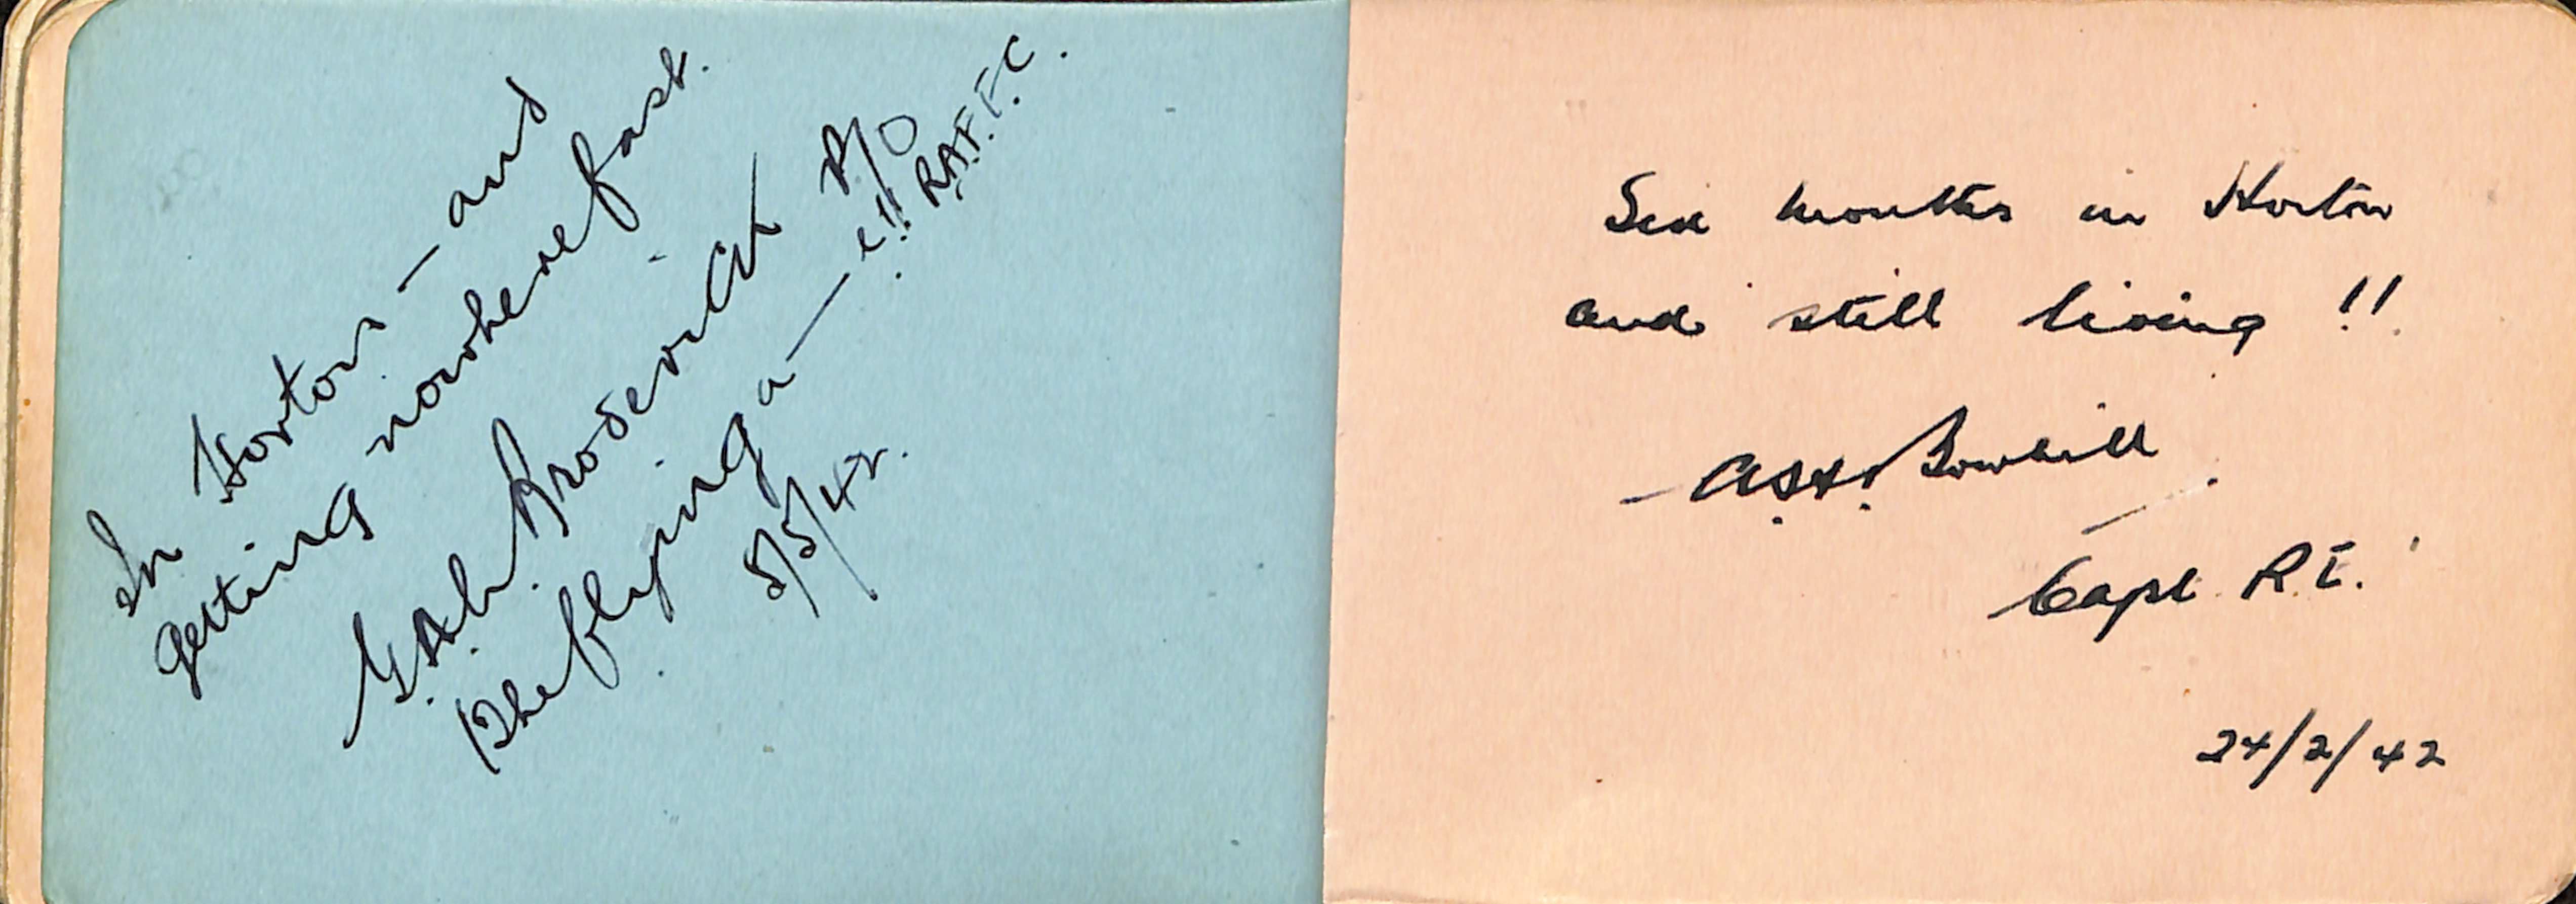 In Horton — and
getting nowhere fast.
G.A.W. Broderick P/O
"The flying a — e"!! R.A.F.F.C.
5/5/42.
Six months in Horton
and still living !!
Bowhill
Capt. R.E.
24/2/42